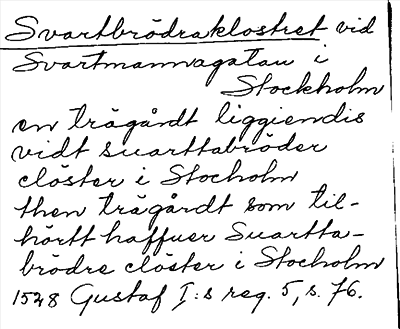 Svartbrödraklostret vid
Svartmannagatan i
Stockholm
en trägårdt liggiendis
vidt suarttabröder
closter i Stocholm
then trägårdt som til-
hörtt haffuer Suartta-
brödre closter i Stocholm
1528 Gustaf I:s reg. 5, s. 76.